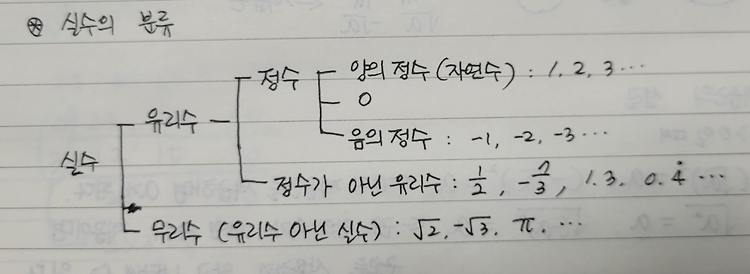 ⊛ 실수의 분류
정수 양의 정수 (자연수) : 1, 2, 3 ⋯
0
유리수
음의 정수 : -1, -2, -3 ⋯
실수
정수가 아닌 유리수 : 1/2, -7/3, 1.3, 0.4̇ ⋯
무리수 (유리수 아닌 실수) : √2, -√3, π, ⋯